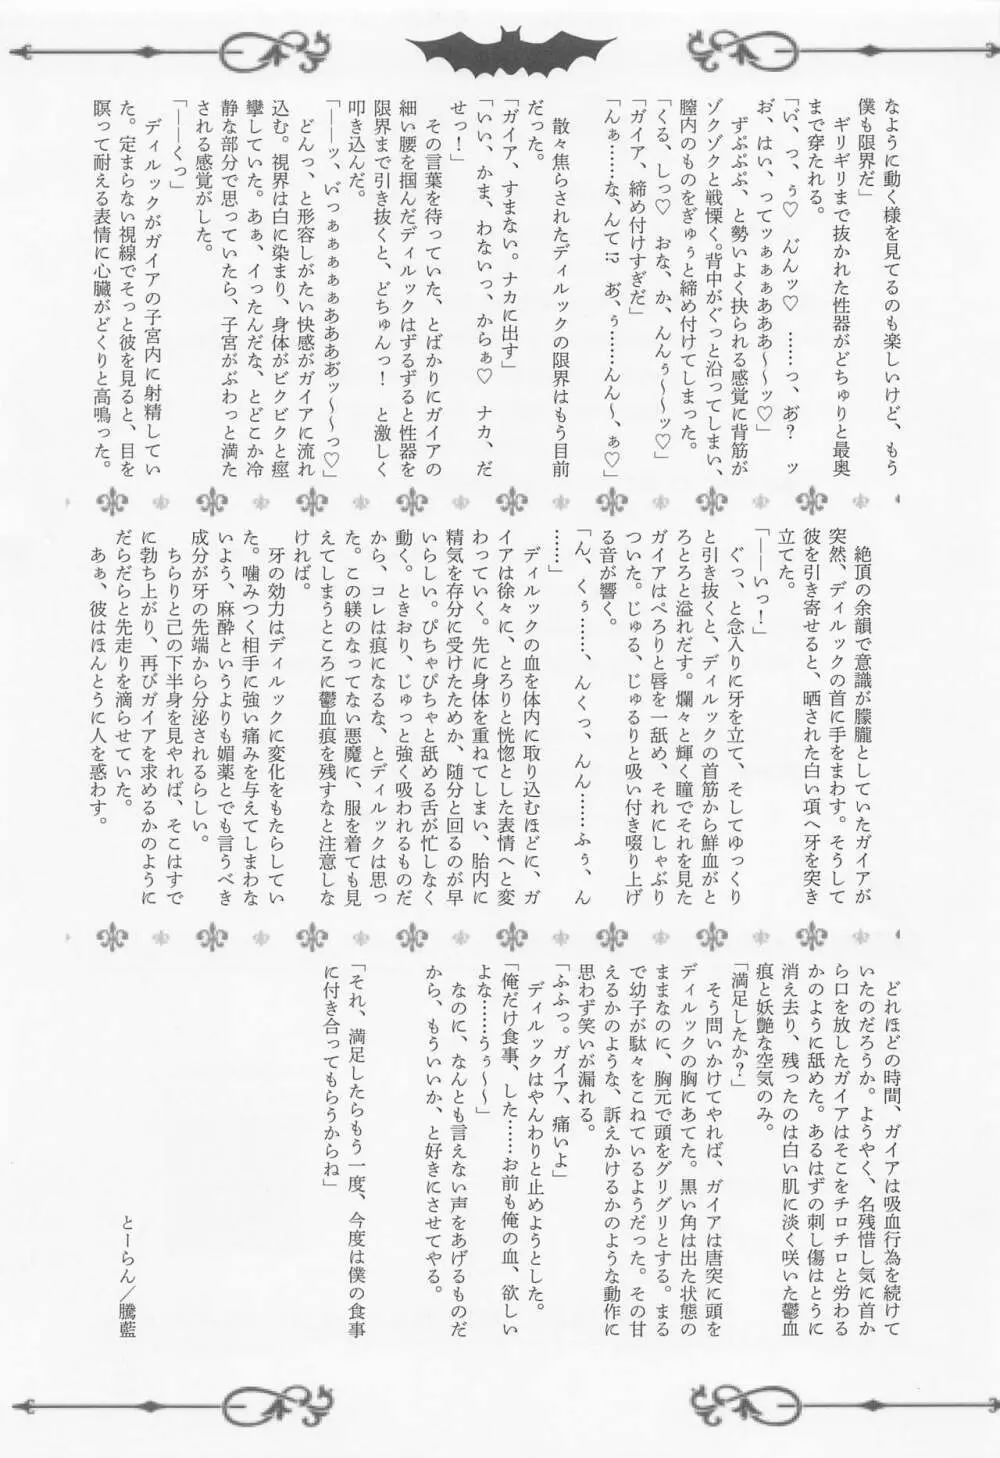 なように動く様を見てるのも楽しいけど、もう
僕も限界だ」
　ギリギリまで抜かれた性器がどちゅりと最奥
まで穿たれる。
「い゛、っ、ぅ♡　ん゛んッ♡　……っ、あ゛？　ッ
お、はい、ってッぁぁぁあああ〜〜ッ♡」
　ずぷぷぷ、と勢いよく抉られる感覚に背筋が
ゾクゾクと戦慄く。背中がぐっと沿ってしまい、
膣内のものをぎゅぅと締め付けてしまった。
「くる、しっ♡　おな、か、んんぅ〜〜ッ♡」
「ガイア、締め付けすぎだ」
「んぁ……な、んて⁉　あ゛、ぅ……んん〜、ぁ♡」
　散々焦らされたディルックの限界はもう目前
だった。
「ガイア、すまない。ナカに出す」
「いい、かま、わないっ、からぁ♡　ナカ、だ
せっ！」
　その言葉を待っていた、とばかりにガイアの
細い腰を掴んだディルックはずるずると性器を
限界まで引き抜くと、どちゅんっ！　と激しく
叩き込んだ。
「――ッ、い゛っぁぁぁぁぁあああぁ゛ッ〜〜っ♡」
　どんっ、と形容しがたい快感がガイアに流れ
込む。視界は白に染まり、身体がビクビクと痙
攣していた。あぁ、イったんだな、とどこか冷
静な部分で思っていたら、子宮がぶわっと満た
される感覚がした。
「――くっ」
　ディルックがガイアの子宮内に射精してい
た。定まらない視線でそっと彼を見ると、目を
瞑って耐える表情に心臓がどくりと高鳴った。
　絶頂の余韻で意識が朦朧としていたガイアが
突然、ディルックの首に手をまわす。そうして
彼を引き寄せると、晒された白い項へ牙を突き
立てた。
「――いっ！」
　ぐっ、と念入りに牙を立て、そしてゆっくり
と引き抜くと、ディルックの首筋から鮮血がと
ろとろと溢れだす。爛々と輝く瞳でそれを見た
ガイアはぺろりと唇を一舐め、それにしゃぶり
ついた。じゅる、じゅるりと吸い付き啜り上げ
る音が響く。
「ん、くぅ……、んくっ、んん……ふぅ、ん
……」
　ディルックの血を体内に取り込むほどに、ガ
イアは徐々に、とろりと恍惚とした表情へと変
わっていく。先に身体を重ねてしまい、胎内に
精気を存分に受けたためか、随分と回るのが早
いらしい。ぴちゃぴちゃと舐める舌が忙しなく
動く。ときおり、じゅっと強く吸われるものだ
から、コレは痕になるな、とディルックは思っ
た。この躾のなってない悪魔に、服を着ても見
えてしまうところに鬱血痕を残すなと注意しな
ければ。
　牙の効力はディルックに変化をもたらしてい
た。噛みつく相手に強い痛みを与えてしまわな
いよう、麻酔というよりも媚薬とでも言うべき
成分が牙の先端から分泌されるらしい。
　ちらりと己の下半身を見やれば、そこはすで
に勃ち上がり、再びガイアを求めるかのように
だらだらと先走りを滴らせていた。
　あぁ、彼はほんとうに人を惑わす。
　どれほどの時間、ガイアは吸血行為を続けて
いたのだろうか。ようやく、名残惜し気に首か
ら口を放したガイアはそこをチロチロと労わる
かのように舐めた。あるはずの刺し傷はとうに
消え去り、残ったのは白い肌に淡く咲いた鬱血
痕と妖艶な空気のみ。
「満足したか？」
　そう問いかけてやれば、ガイアは唐突に頭を
ディルックの胸にあてた。黒い角は出た状態の
ままなのに、胸元で頭をグリグリとする。まる
で幼子が駄々をこねているようだった。その甘
えるかのような、訴えかけるかのような動作に
思わず笑いが漏れる。
「ふふっ。ガイア、痛いよ」
　ディルックはやんわりと止めようとした。
「俺だけ食事、した……お前も俺の血、欲しい
よな……うぅ〜〜」
　なのに、なんとも言えない声をあげるものだ
から、もういいか、と好きにさせてやる。
「それ、満足したらもう一度、今度は僕の食事
に付き合ってもらうからね」
とーらん／騰藍